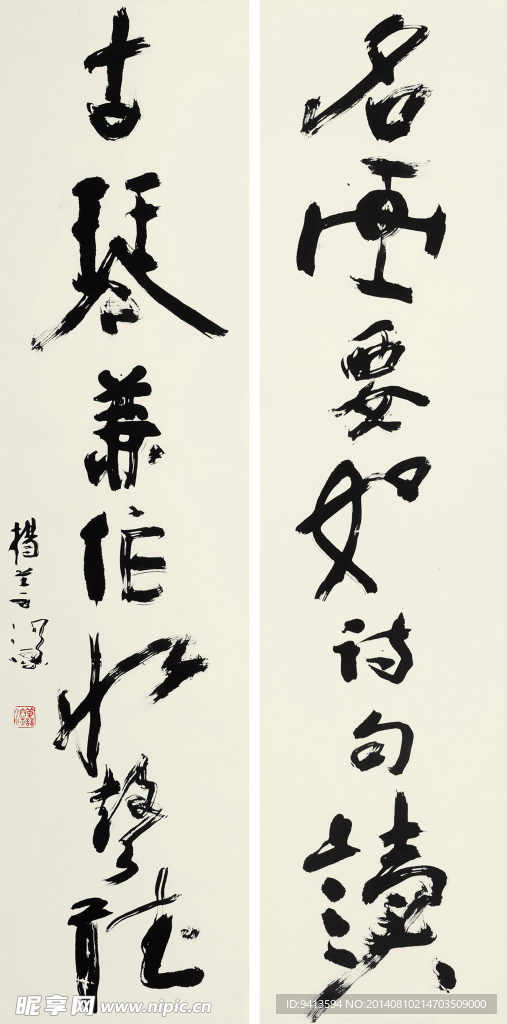 名画要如诗句讀
古琴兼作水聲聽
楊善深
昵享网 www.nipic.cn
ID:9413594 NO:20140810214703509000